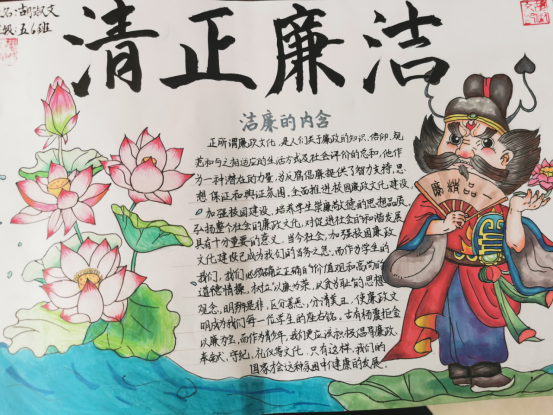 姓名:胡淑文
班级:五6班
清正廉洁
洁廉的内含
正所谓廉政文化,是人们关于廉政的知识、信仰、规
范和与之相适应的生活方式及社会评价的总和,他作
为一种潜在的力量,为反腐倡廉提供了智力支持、思
想保证和舆论氛围,全面推进校园廉政文化建设,
加强校园建设,培养学生崇廉敬德的思想品质
弘扬整个社会的廉政文化,对促进社会的和谐发展
具有十分重要的意义。当今社会,加强校园廉政
文化建设已成为我们的当务之急。而作为学生的
我们,我们必须确立正确的价值观和高尚的
道德情操,树立以廉为荣,以贪为耻的思想
观念,明辨是非,区分善恶,分清美丑,使廉政文
明成为我们每一位学生的座右铭。古有杨震拒金
以廉为宝,而作为青少年,我们更应该积极倡导廉政、
奉献、守纪、礼仪等文化,只有这样,我们的
国家才会这种氛围中健康的发展。